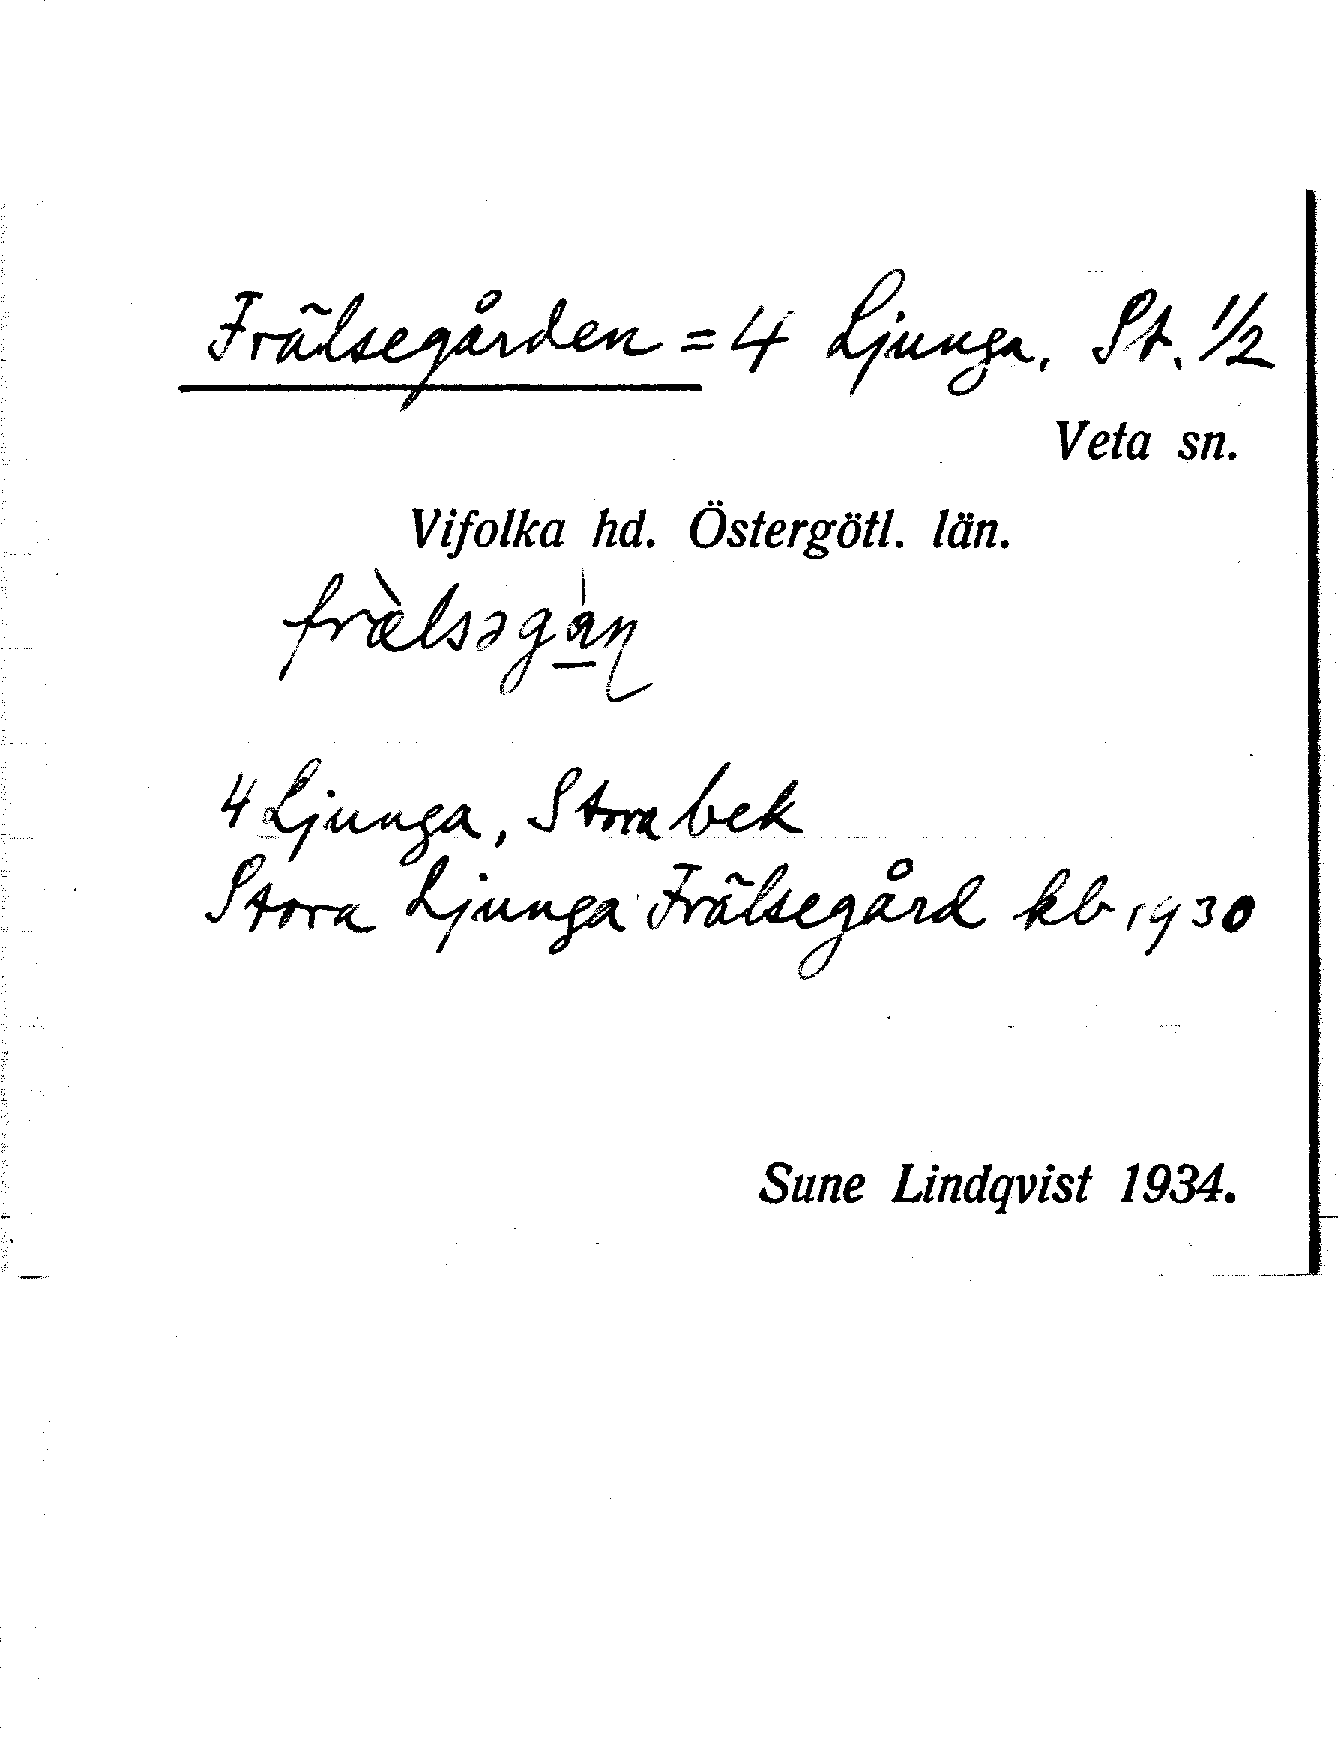 Frälsegården = 4 Ljunga, St. 1/2
Veta sn.
Vifolka hd. Östergötl. län.
4 Ljunga, Stora bek
Stora Ljunga Frälsegård kb 1930
Sune Lindqvist 1934.